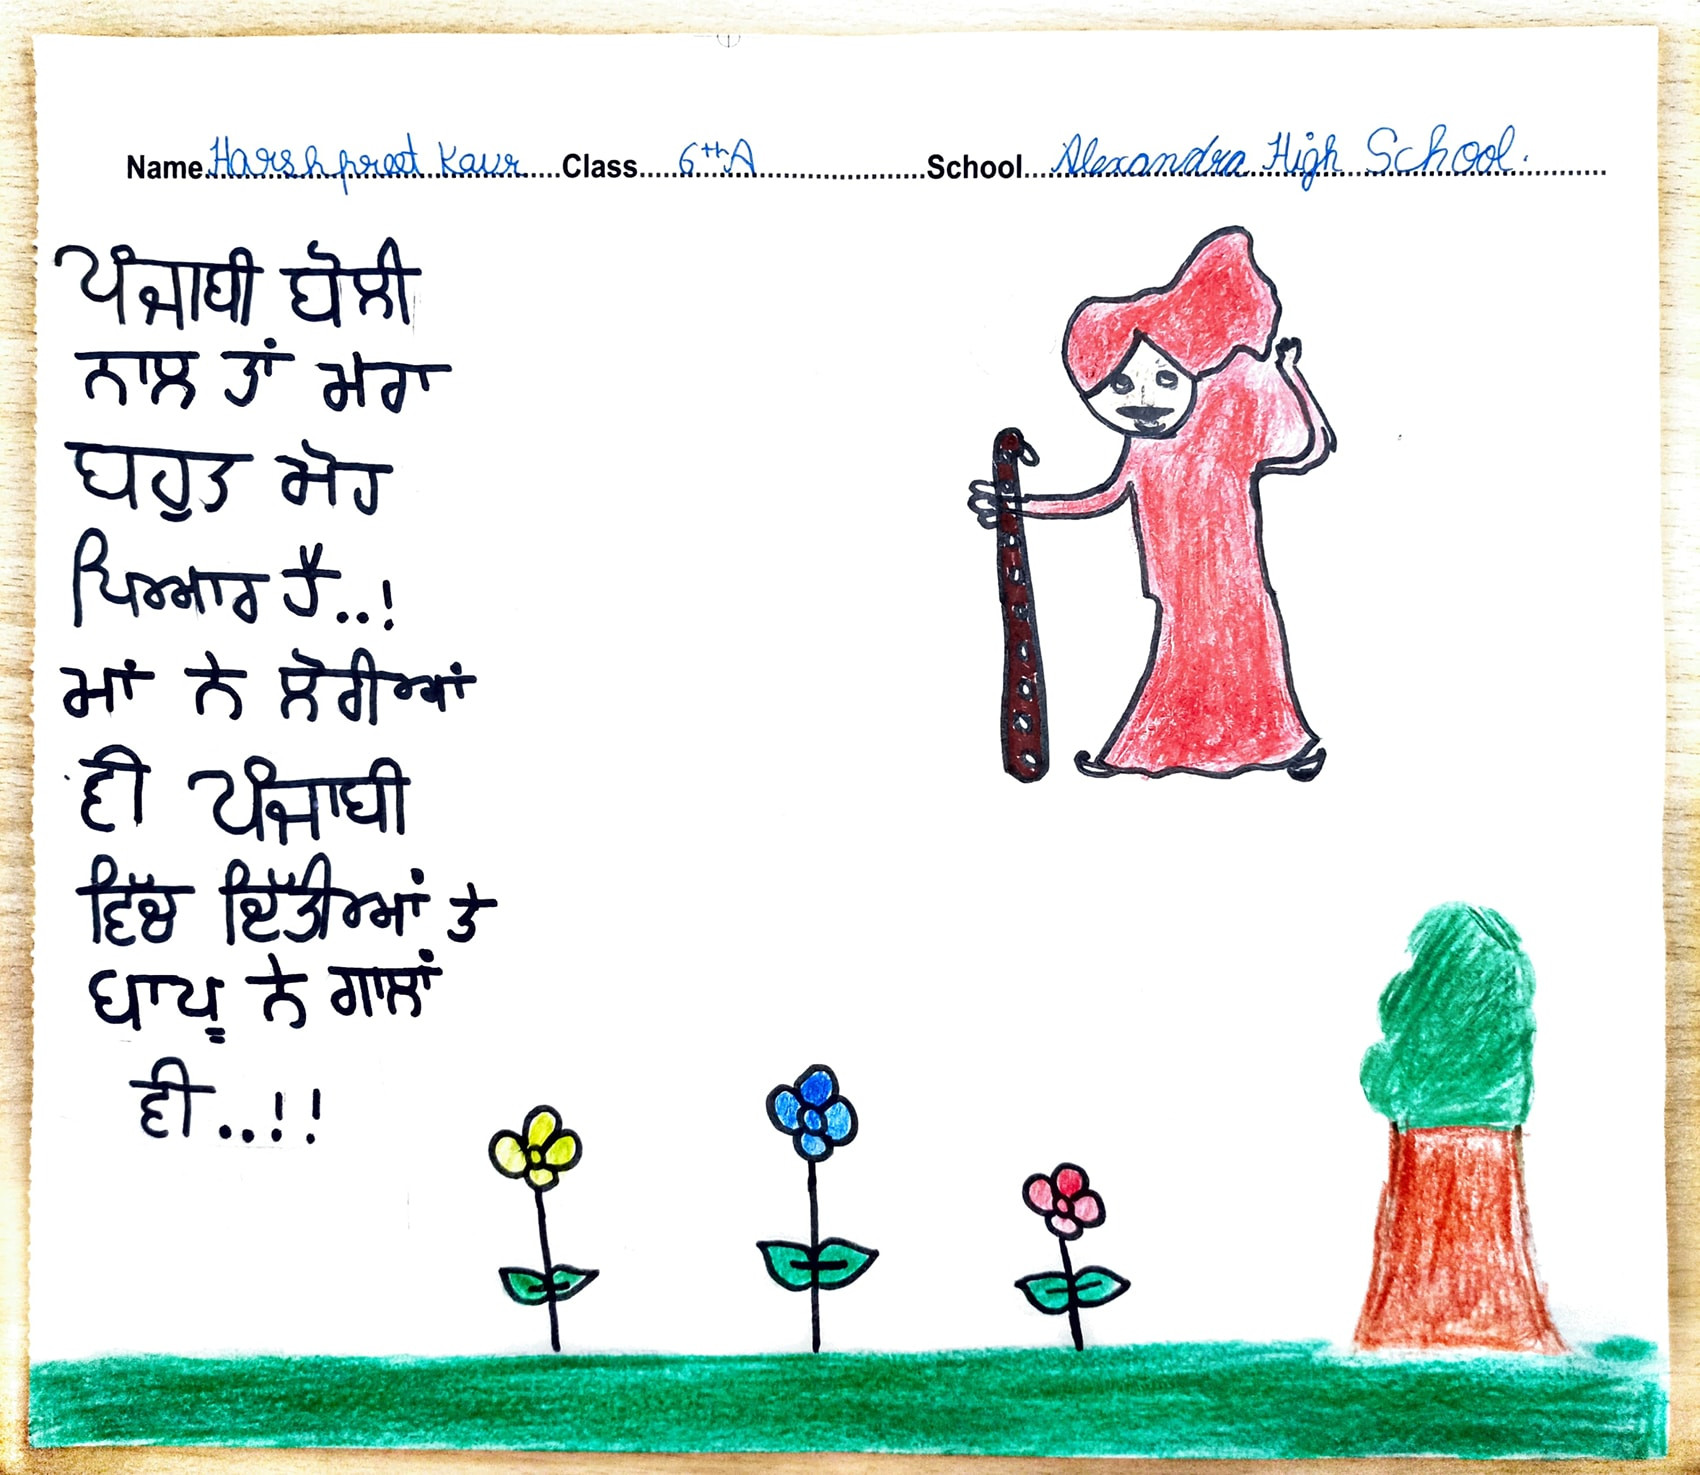 Name Harshpreet Kaur Class 6th A School Alexandra High School.
ਪੰਜਾਬੀ ਬੋਲੀ
ਨਾਲ ਤਾਂ ਮੇਰਾ
ਬਹੁਤ ਮੋਹ
ਪਿਆਰ ਹੈ..!
ਮਾਂ ਨੇ ਲੋਰੀਆਂ
ਵੀ ਪੰਜਾਬੀ
ਵਿੱਚ ਦਿੱਤੀਆਂ ਤੇ
ਬਾਪੂ ਨੇ ਗਾਲਾਂ
ਵੀ..!!